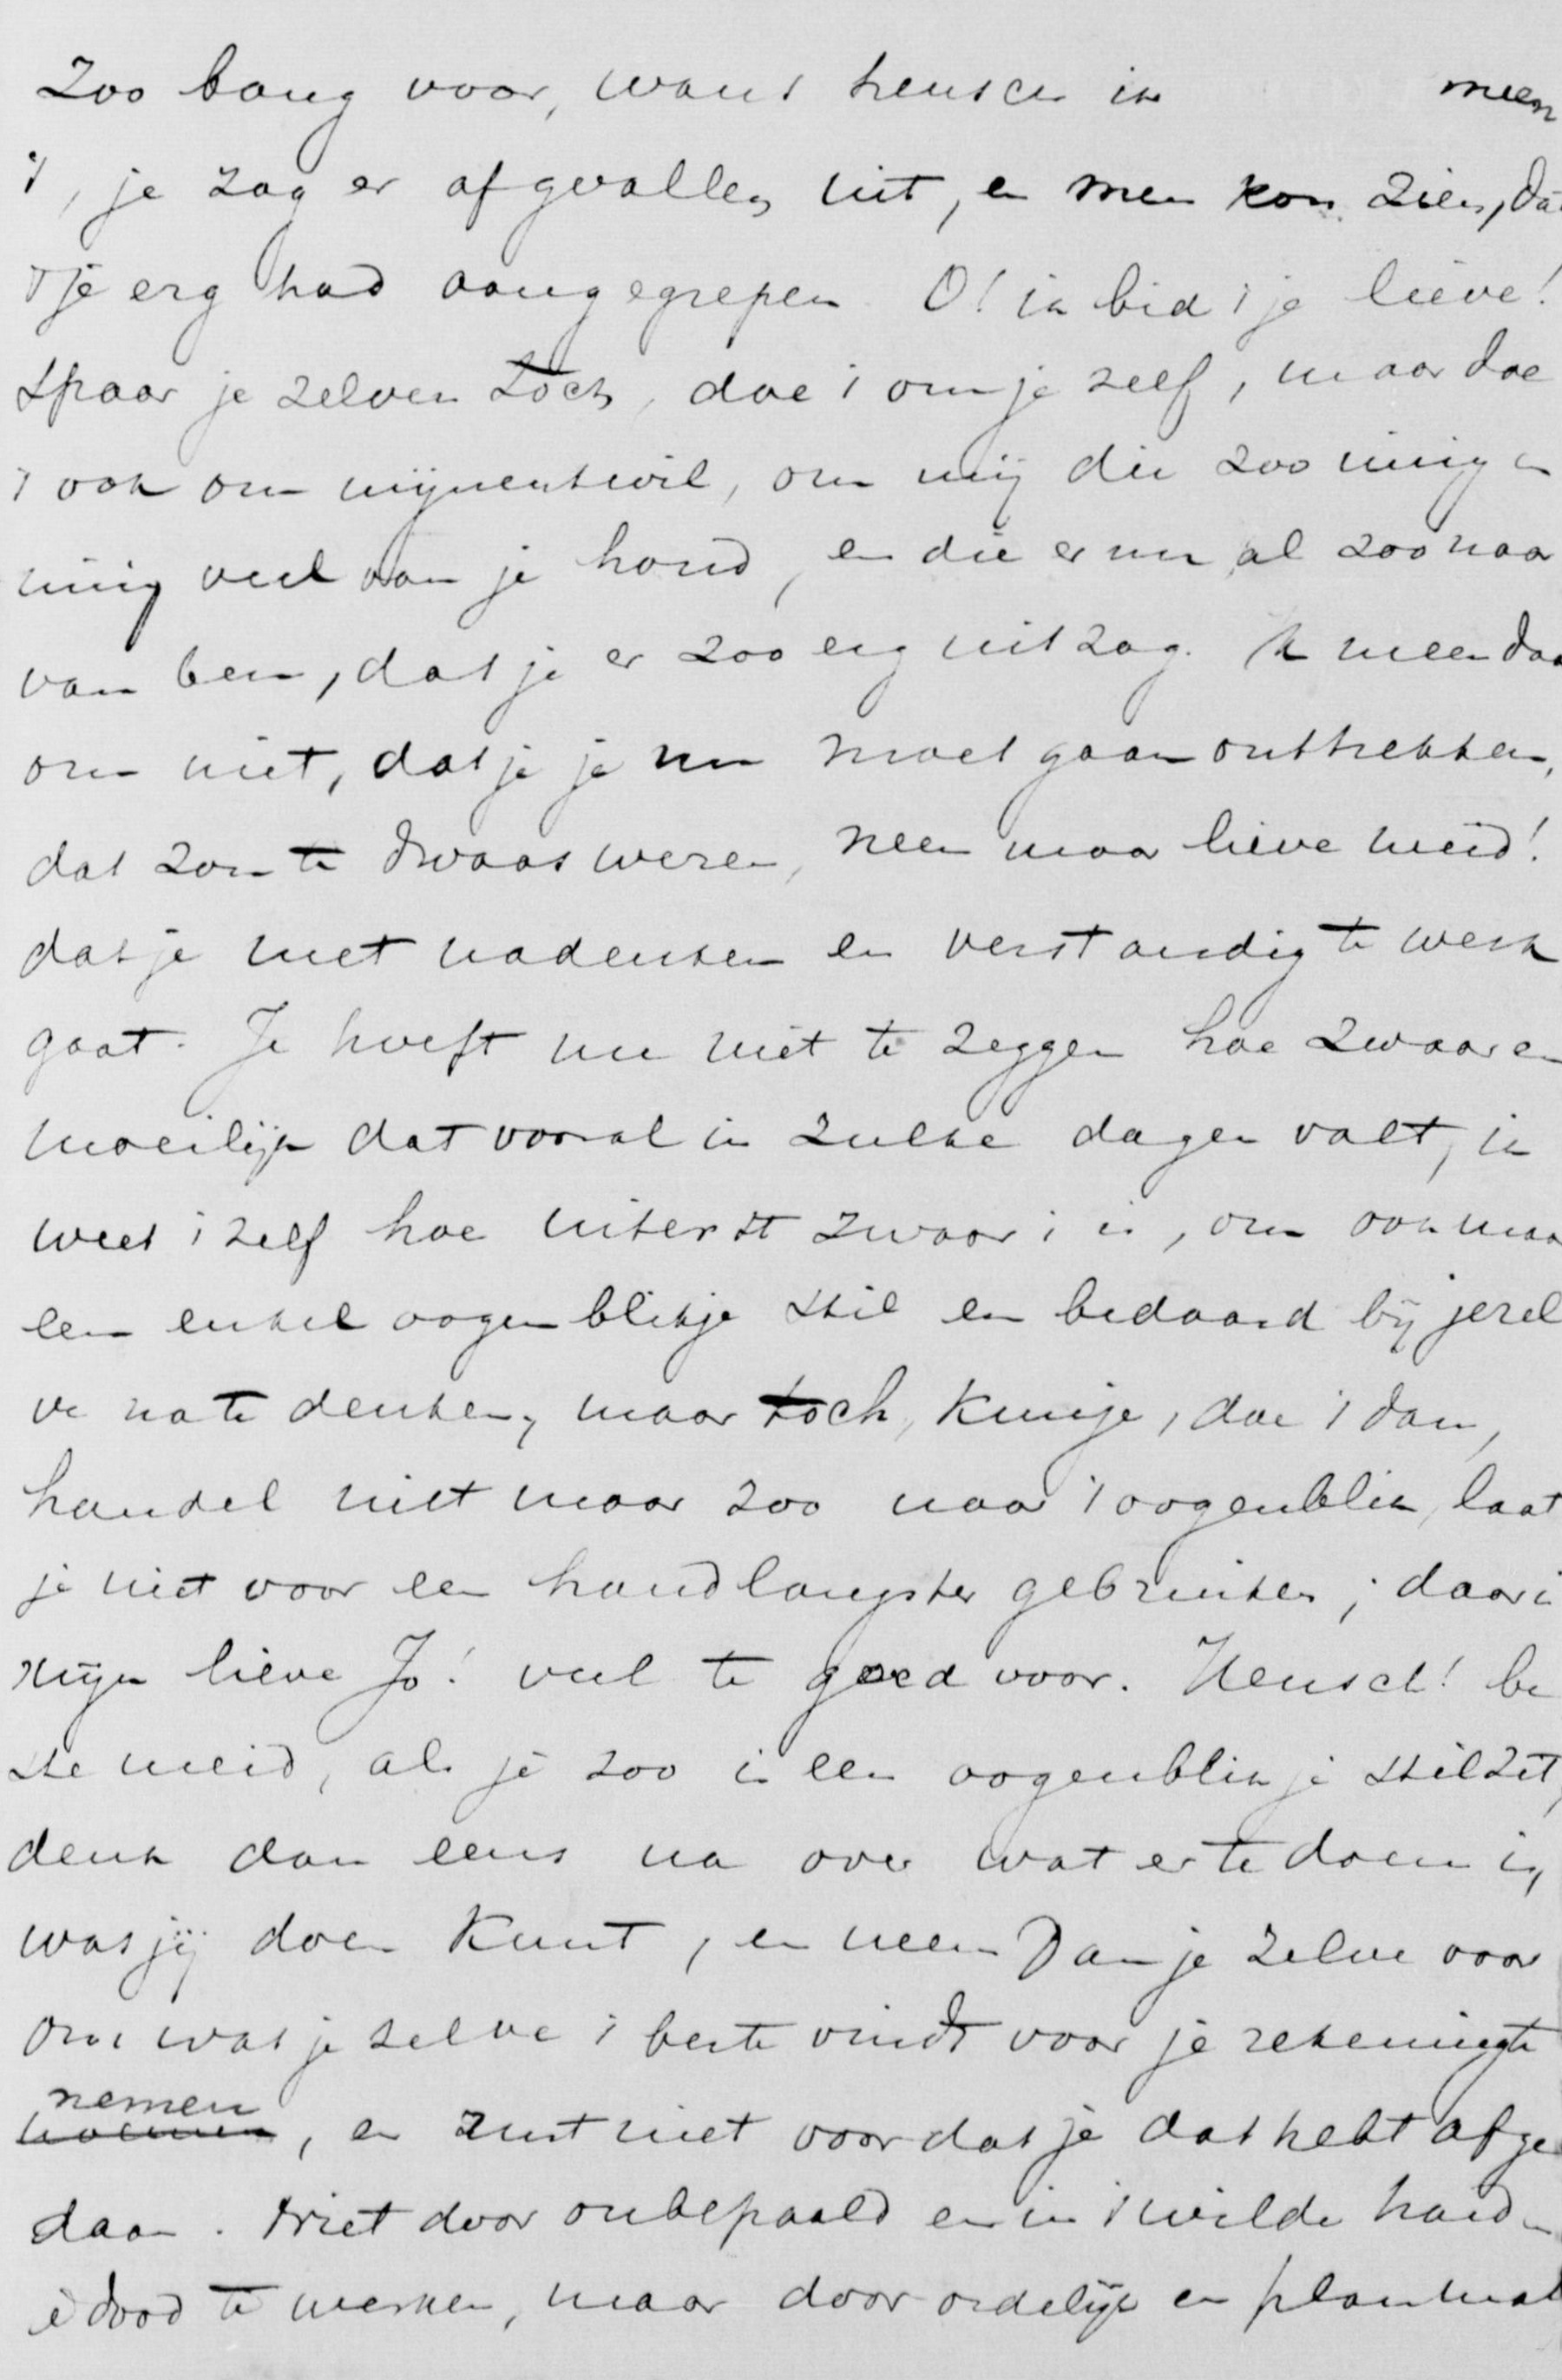 zoo bang voor, want heusch ik meen
't, je zag er afgevallen uit, en men kon zien, dat
't je erg had aangegrepen O! ik bid 't je lieve!
spaar je zelven toch, doe 't om je zelf, maar doe
't ook om mijnentwil, om mij die zoo innig en
innig veel van je houd, en die er nu al zoo naar
van ben, dat je er zoo erg uitzag. Ik meen daar
om niet, dat je je nu moet gaan onttrekken,
dat zou te dwaas wezen, neen maar lieve meid!
dat je met nadenken en verstandig te werk
gaat. Je hoeft me niet te zeggen hoe zwaar en
moeilijk dat vooral in zulke dagen valt, ik
weet 't zelf hoe uiterst zwaar 't is, om ook maar
een enkel oogenblikje stil en bedaard bij jezel
ve na te denken, maar toch, kun je, doe 't dan,
handel niet maar zoo naar 't oogenblik, laat
je niet voor een handlangster gebruiken; daar is
mijn lieve Jo! veel te goed voor. Heusch! be
ste meid, als je zoo in een oogenblikje stil zit,
denk dan eens na over wat er te doen is,
wat jij doen kunt, en neem dan je zelve voor
om wat je zelve 't beste vindt voor je rekening te
nemen, en rust niet voordat je dat hebt afge
daan. Niet door onbepaald en in 't wilde hard
dood te werken, maar door ordelijk en planmat